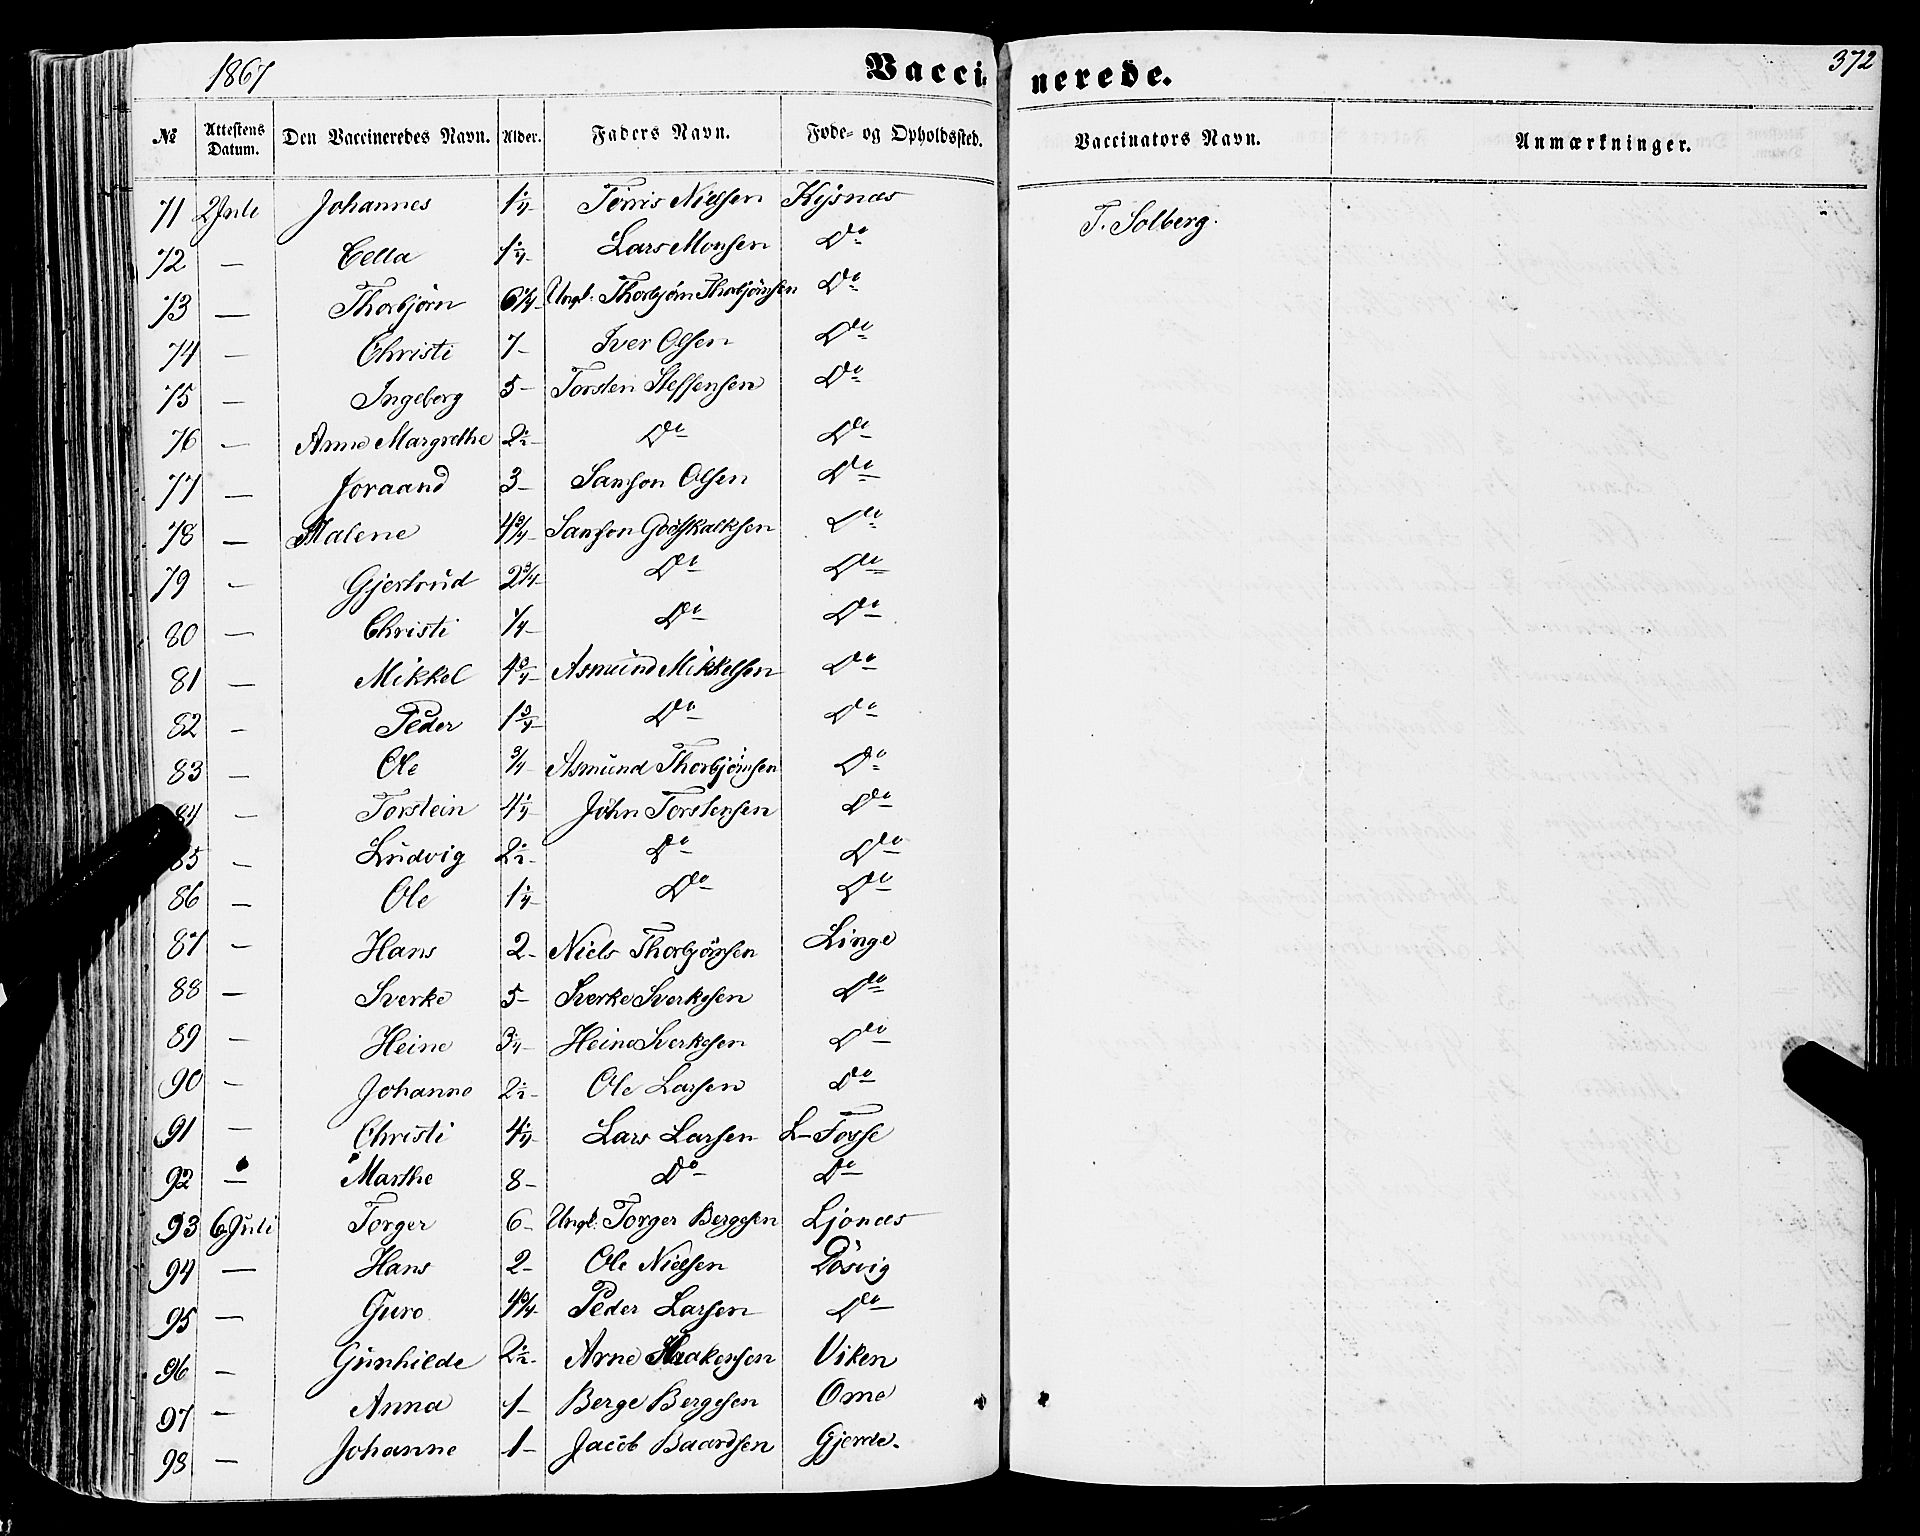 1867 Vaccinerede. 372
№ Attestens Datum. Den Vaccineredes Navn. Alder. Faders Navn. Føde- og Opholdssted. Vaccinators Navn. Anmærkninger.
71 2 Juli Johannes 1¼ Tørris Nielsen Kysnæs T. Solberg.
72 — Cella 1¼ Lars Monsen Do
73 — Thorbjörn 6¼ Ungk: Thorbjörn Thorbjörnsen Do
74 — Christi 7 Iver Olsen Do
75 — Ingeborg 5 Torsten Steffensen Do
76 — Anne Margrethe 2½ Do Do
77 — Joraand 3 Samson Olsen Do
78 — Malene 4¾ Samson Godskalksen Do
79 — Gjertrud 2¾ Do Do
80 — Christi ¼ Do Do
81 — Mikkel 4¾ Asmund Mikkelsen Do
82 — Peder 1¾ Do Do
83 — Ole ¾ Asmund Thorbjörnsen Do
84 — Torstein 4¼ John Torstensen Do
85 — Ludvig 2½ Do Do
86 — Ole 1¼ Do Do
87 — Hans 2 Niels Thorbjörnsen Linge
88 — Sverke 5 Sverke Sverkesen Do
89 — Heine 3¼ Heine Sverkesen Do
90 — Johanne 2½ Ole Larsen Do
91 — Christi 4¼ Lars Larsen L-Fosse
92 — Marthe 8 Do Do
93 6 Juli Torger 6 Ungk: Torger Bergesen Ljonæs
94 — Hans 2 Ole Nielsen Dösvig
95 — Guro 4¾ Peder Larsen Do
96 — Gunhilde 2½ Arne Haakensen Viken
97 — Anna 1 Berge Bergesen Ome
98 — Johanne 1 Jacob Baardsen Gjerde.